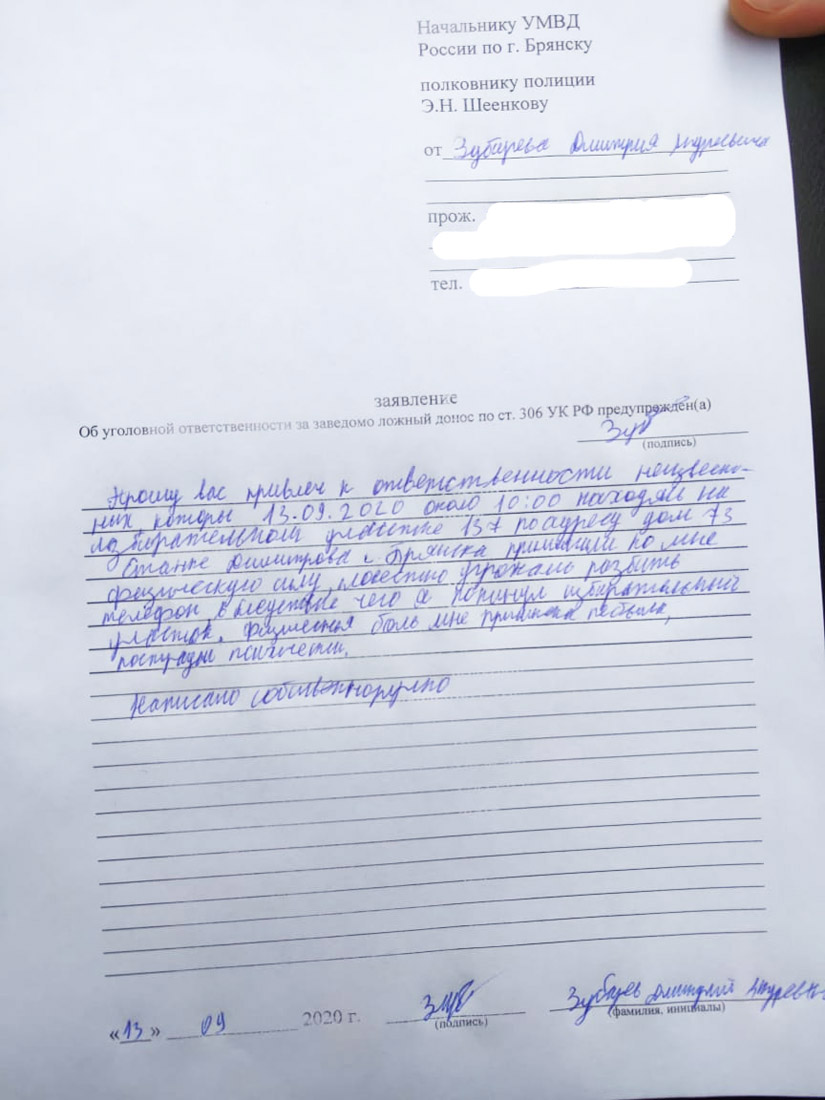 Начальнику УМВД
России по г. Брянску
полковнику полиции
Э.Н. Шеенкову
от Зубарева Дмитрия Андреевича
прож.
тел.
заявление
Об уголовной ответственности за заведомо ложный донос по ст. 306 УК РФ предупрежден(а)
Зуб
(подпись)
Прошу вас привлеч к ответственности неизвесно-
них, которы 13.09.2020 около 10:00 находям на
избирательном участке 137 по адресу дом 73
Станке Димитрова г. Брянска применили ко мне
физическую силу, угрожали разбить
телефон в чего я покинул избирательный
участок. Физическая боль мне
Написано собственноручно
«13» 09 2020 г.
Зуб
(подпись)
Зубарев Дмитрий
(фамилия, инициалы)